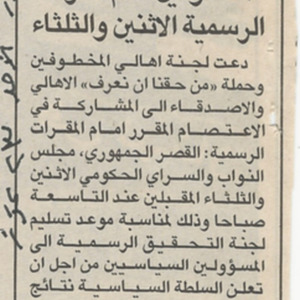 الرسمية الاثنين والثلثاء
دعت لجنة اهالي المخطوفين
وحملة «من حقنا ان نعرف» الاهالي
والاصدقاء الى المشاركة في
الاعتصام المقرر امام المقرات
الرسمية: القصر الجمهوري، مجلس
النواب والسراي الحكومي الاثنين
والثلثاء المقبلين عند التاسعة
صباحا وذلك لمناسبة موعد تسليم
لجنة التحقيق الرسمية الى
المسؤولين السياسيين من اجل ان
تعلن السلطة السياسية نتائج